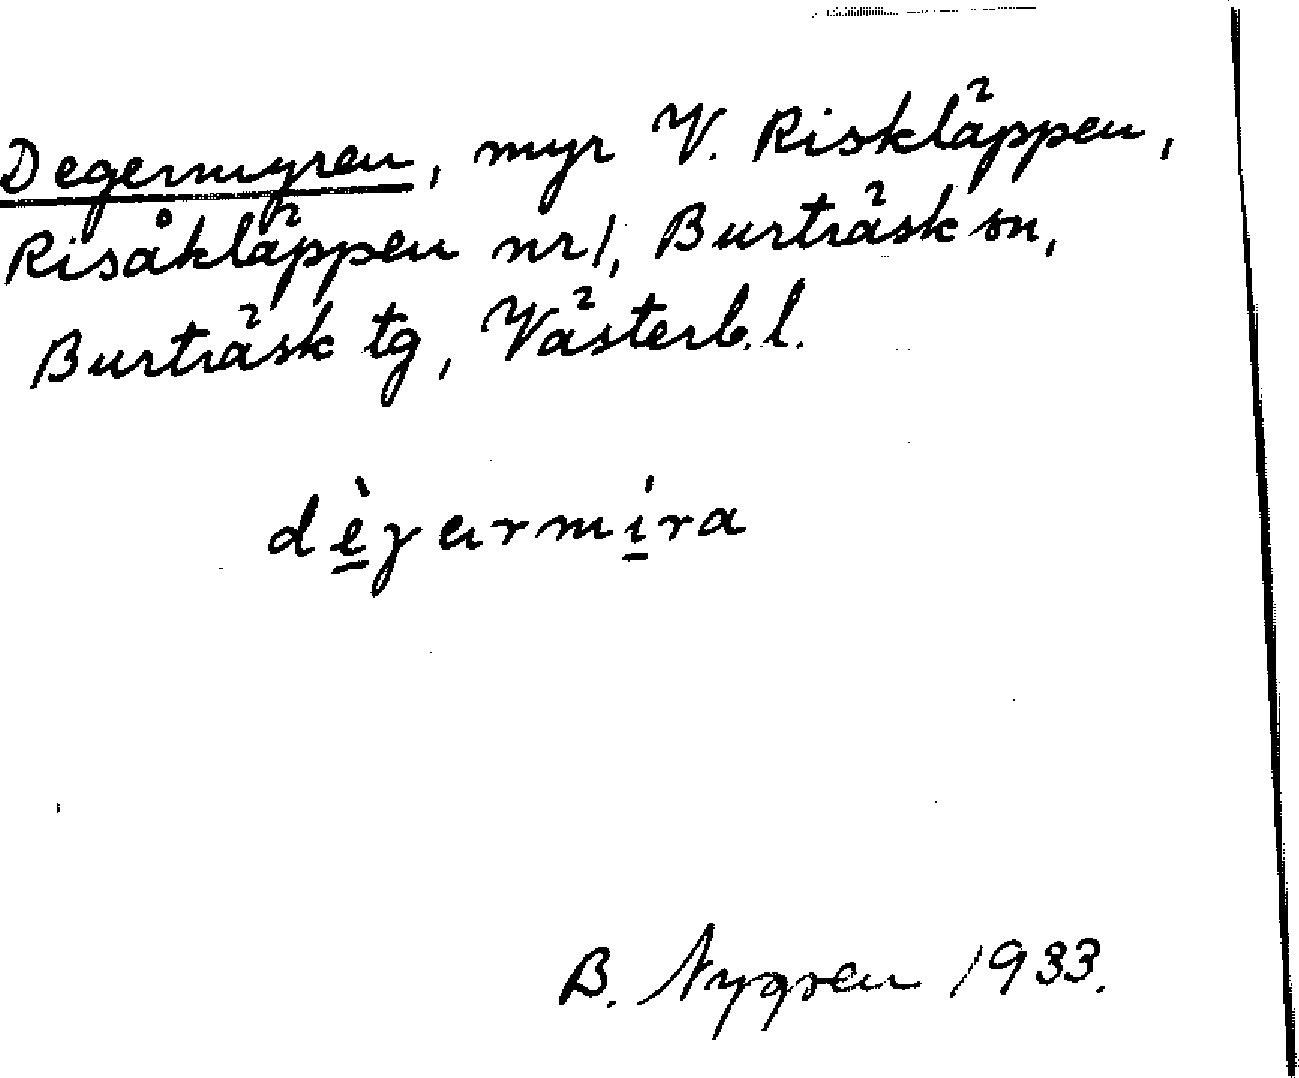 Degermyren, myr V. Riskläppen,
Risåkläppen nr 1, Burträsk sn,
Burträsk tg, Västerb. l.
dèɣarmíra
B. Nygren 1933.